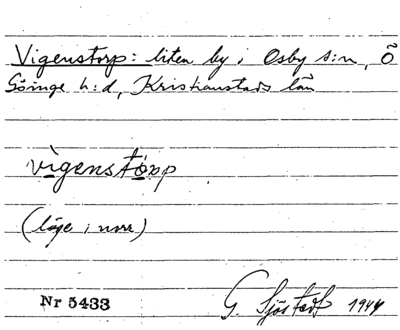 Vigenstorp: liten by i Osby s:n, Ö
Göinge h:d, Kristianstads län
vigenstorp
(läge i norr)
Nr 5433
G. Sjöstedt 1944